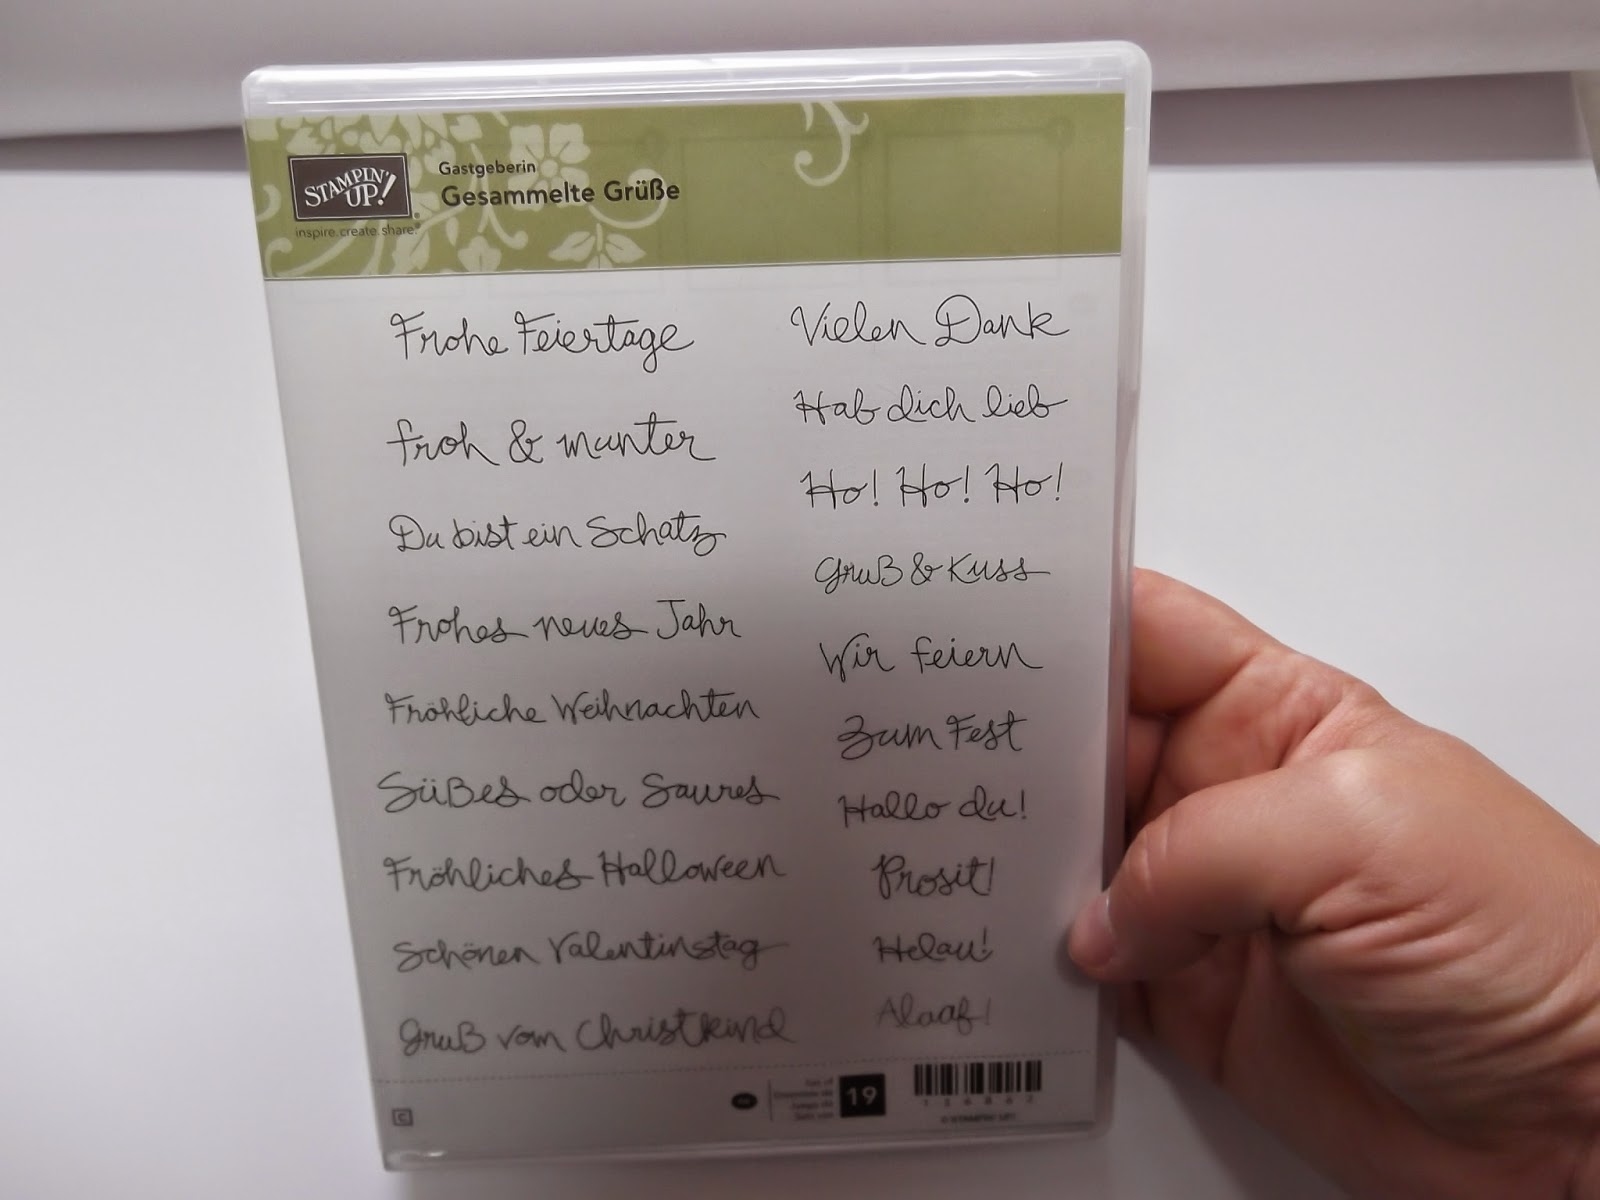 STAMPIN' UP!
inspire.create.share.
Gastgeberin
Gesammelte Grüße
Frohe Feiertage
froh & munter
Du bist ein Schatz
Frohes neues Jahr
Fröhliche Weihnachten
Süßes oder Saures
Fröhliches Halloween
Schönen Valentinstag
Gruß vom Christkind
Vielen Dank
Hab dich lieb
Ho! Ho! Ho!
Gruß & Kuss
Wir feiern
Zum Fest
Hallo du!
Prosit!
Helau!
Alaaf!
C
Set of
19
© STAMPIN' UP!